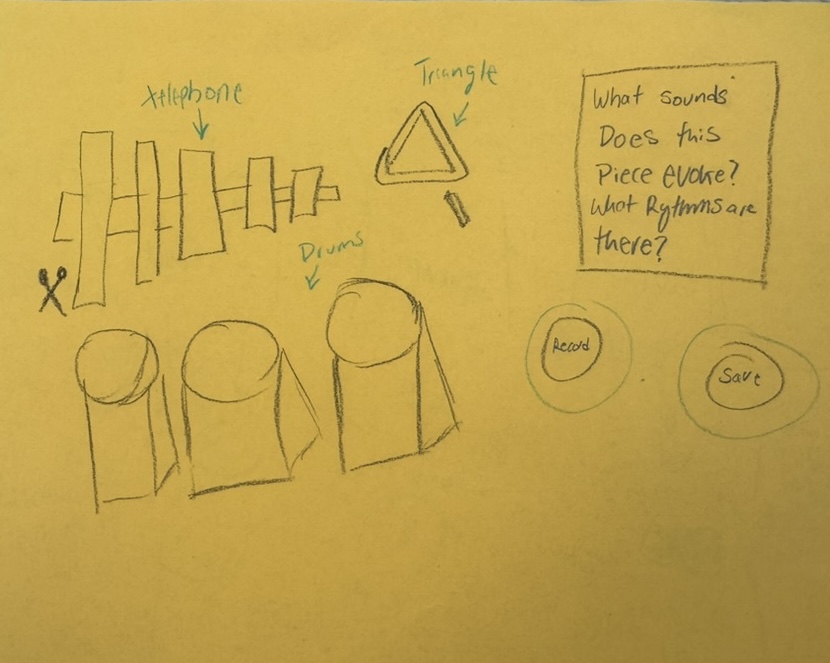 Xelephone
Triangle
What sounds
Does this
Piece evoke?
What Rythms are
there?
Drums
Record
Save